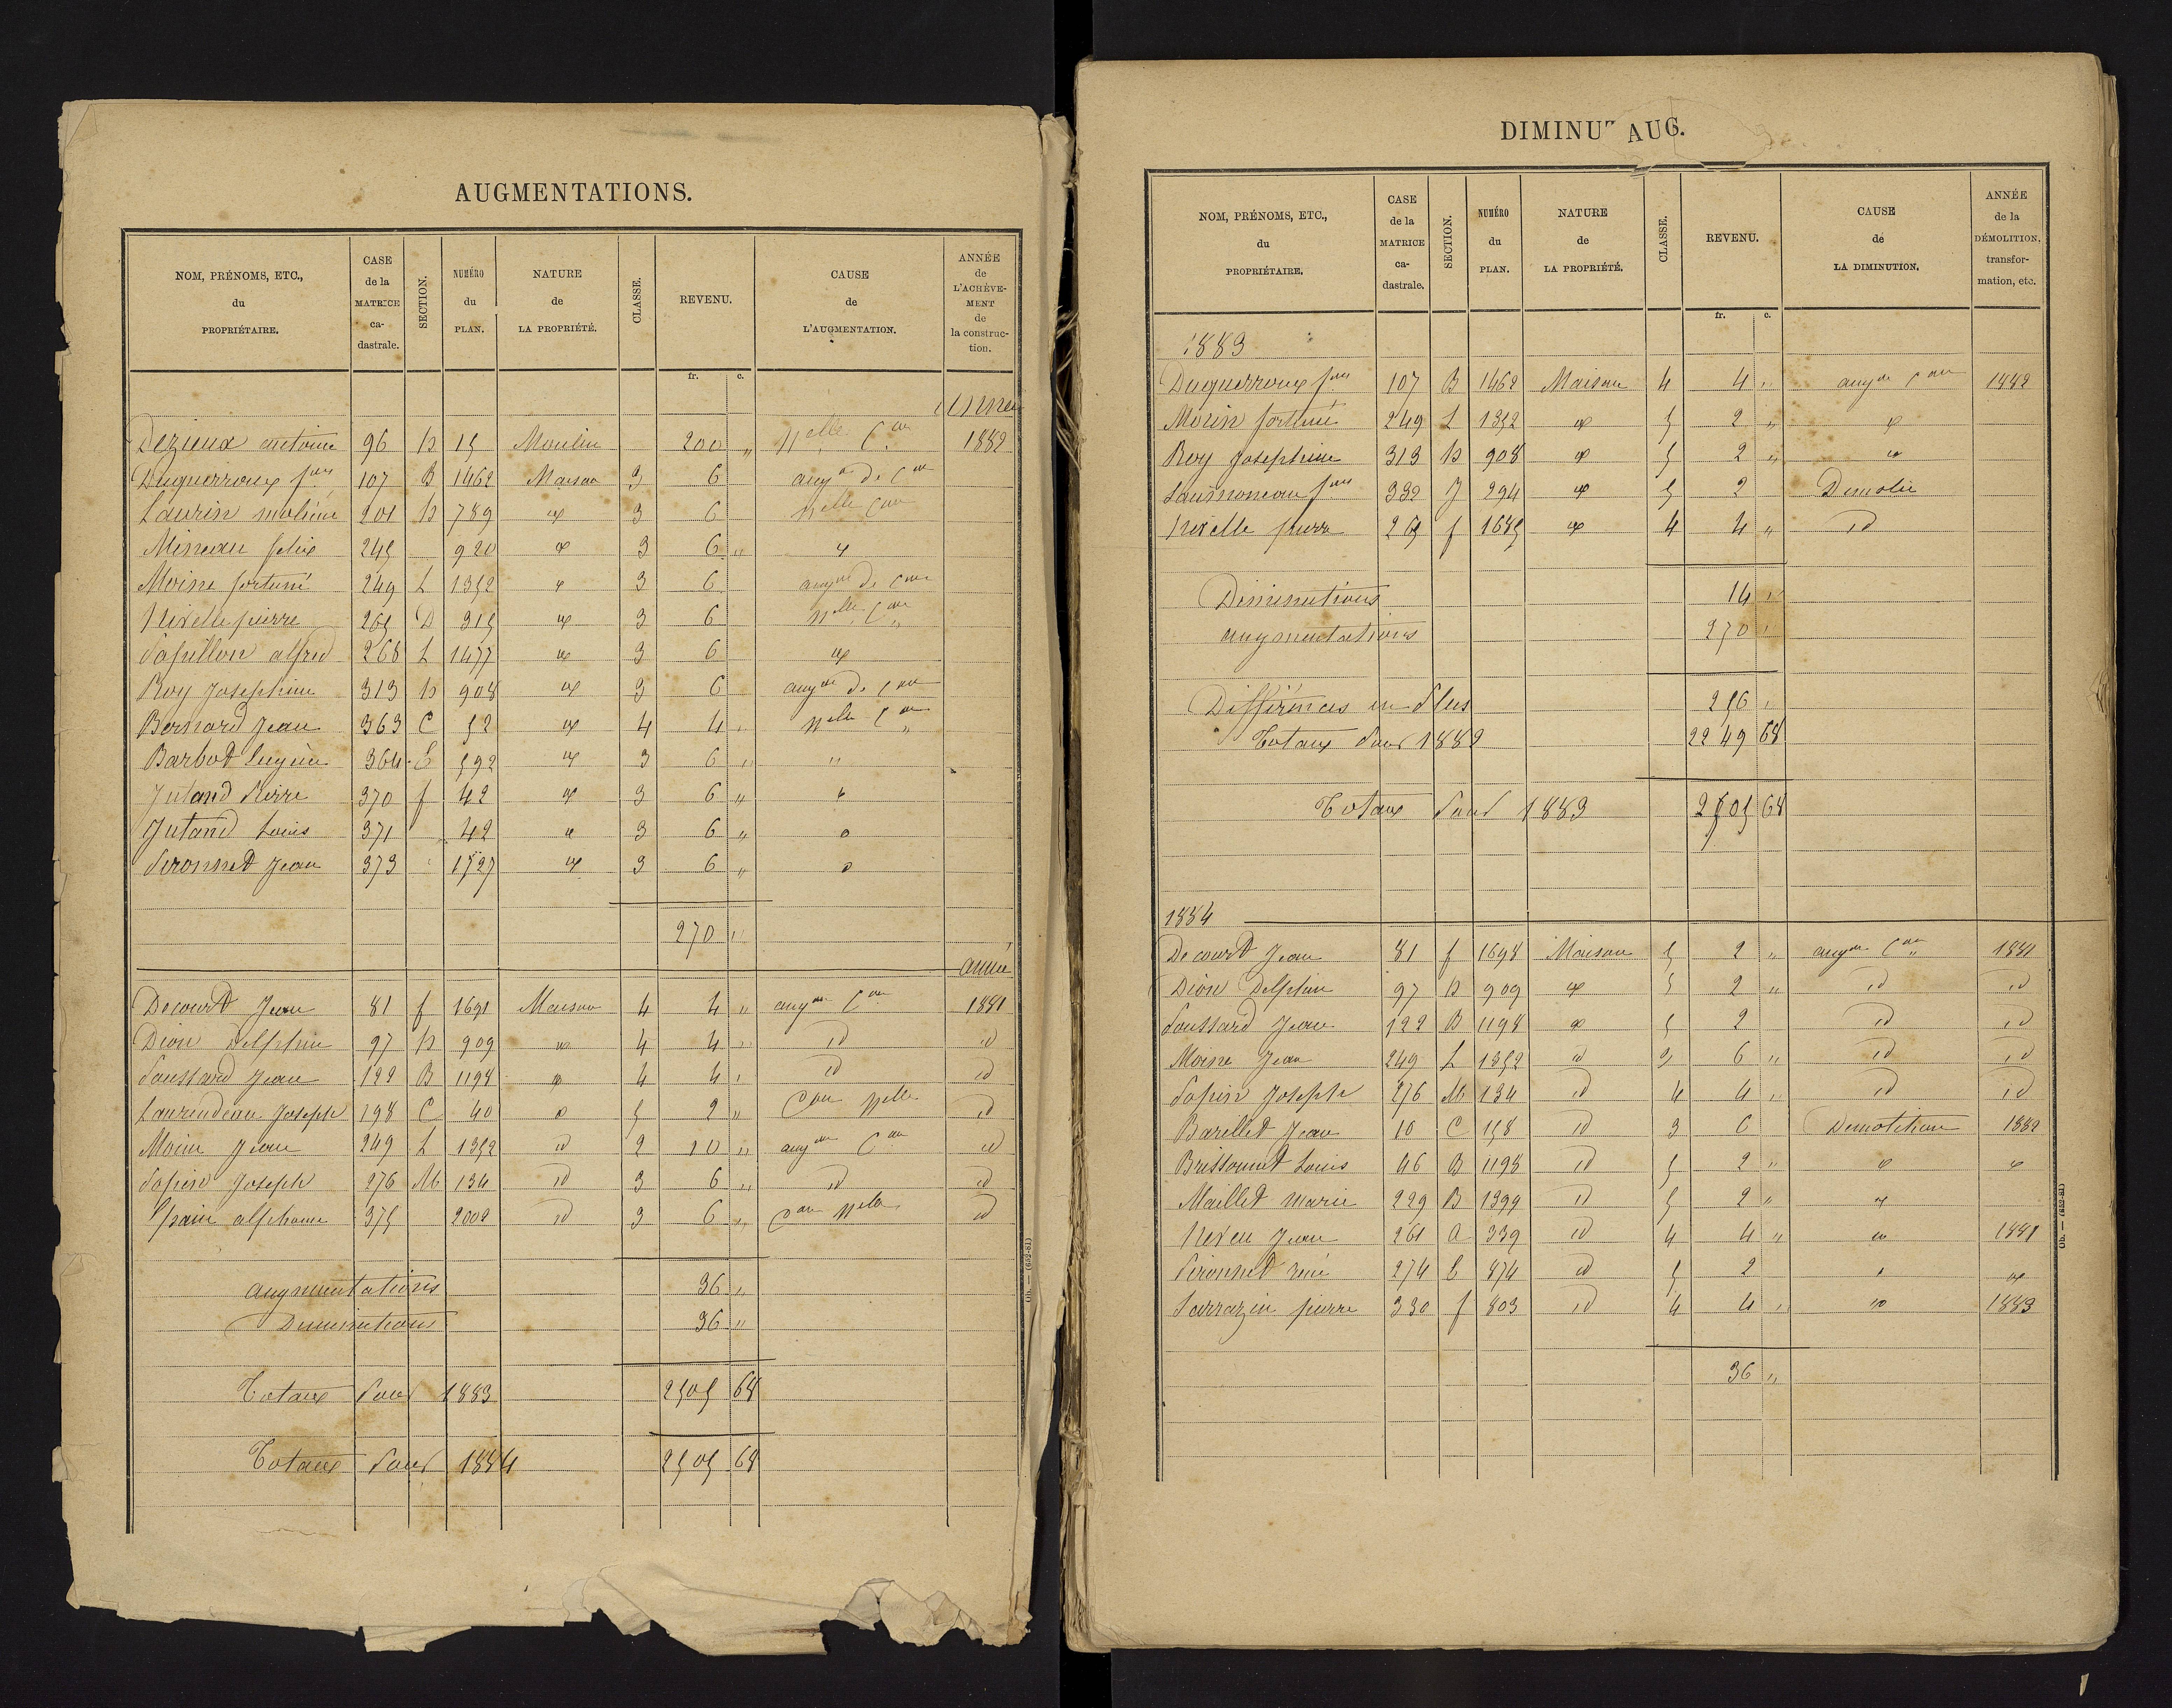 AUGMENTATIONS.
NOM, PRÉNOMS, ETC., du PROPRIÉTAIRE. CASE de la MATRICE cadastrale. SECTION. NUMÉRO du PLAN. NATURE de LA PROPRIÉTÉ. CLASSE. REVENU. CAUSE de L'AUGMENTATION. ANNÉE de L'ACHÈVEMENT de la construction.
fr. c.
Année
Dezieux antoine 96 15 Moulin 200 " Nelle Con 1882
Duguerroux 107 B 1462 Maison 3 6 augon de Con
Laurin 201 789 " 3 6 Nelle Con
Mineau felix 245 920 " 3 6 " "
Moine fortuné 249 L 1352 " 3 6 augon de Con
Nivelle pierre 265 D 315 " 3 6 Nelle Con
Papillon alfred 268 L 1477 " 3 6 "
Roy Josephine 313 908 " 3 6 augon de Con
Bernard Jean 363 C 52 " 4 4 " Nelle Con
Barbot Eugène 364 E 592 " 3 6 " "
Jutand Pierre 370 f 42 " 3 6 " "
Jutand Louis 371 42 " 3 6 " "
Peronnet Jean 373 " 1527 " 3 6 " "
270 "
année
Decourt Jean 81 f 1691 Maison 4 4 " augon Con 1881
Dion Delphin 97 909 " 4 4 " id id
Poussard Jean 122 B 1198 " 4 4 " id id
Laurendeau Joseph 198 C 40 " 5 2 " Con Nelle id
Moine Jean 249 L 1352 id 2 10 " augon Con id
Papin Joseph 276 M 134 id 3 6 " id id
alphonse 375 2002 id 3 6 " Con Nelle id
augmentations 36 "
Diminutions 36 "
Totaux Pour 1883 2505 68
Totaux Pour 1884 2505 68
Ob. — (652-81)
DIMINUT AUG.
NOM, PRÉNOMS, ETC., du PROPRIÉTAIRE. CASE de la MATRICE cadastrale. SECTION. NUMÉRO du PLAN. NATURE de LA PROPRIÉTÉ. CLASSE. REVENU. CAUSE de LA DIMINUTION. ANNÉE de la DÉMOLITION, transformation, etc.
fr. c.
1883
Duguerroux 107 B 1462 Maison 4 4 " augon Con 1882
fortuné 249 L 1352 " 5 2 " "
Roy Josephine 313 908 " 5 2 " "
332 J 294 " 5 2 Demolie
Nivelle pierre 265 f 1685 " 4 4 " id
Diminutions 14 "
augmentations 270 "
Différences en Plus 256 "
Totaux Pour 1882 2249 68
Totaux Pour 1883 2505 68
1884
Decourt Jean 81 f 1698 Maison 5 2 " augon Con 1881
Dion Delphin 97 909 " 5 2 " id id
Poussard Jean 122 B 1198 " 5 2 id id
Moine Jean 249 L 1352 id 3 6 " id id
Papin Joseph 276 M 134 id 4 4 " id id
Barillet Jean 10 C 158 id 3 6 Demolition 1882
Brissonnet Louis 46 B 1198 id 5 2 " " "
Maillet marie 229 B 1399 id 5 2 " "
Neveu Jean 261 a 339 id 4 4 " " 1881
Peronnet rené 274 E 874 id 5 2 " "
Sarrazin pierre 330 f 803 id 4 4 " " 1883
36 "
Ob. — (652-81)